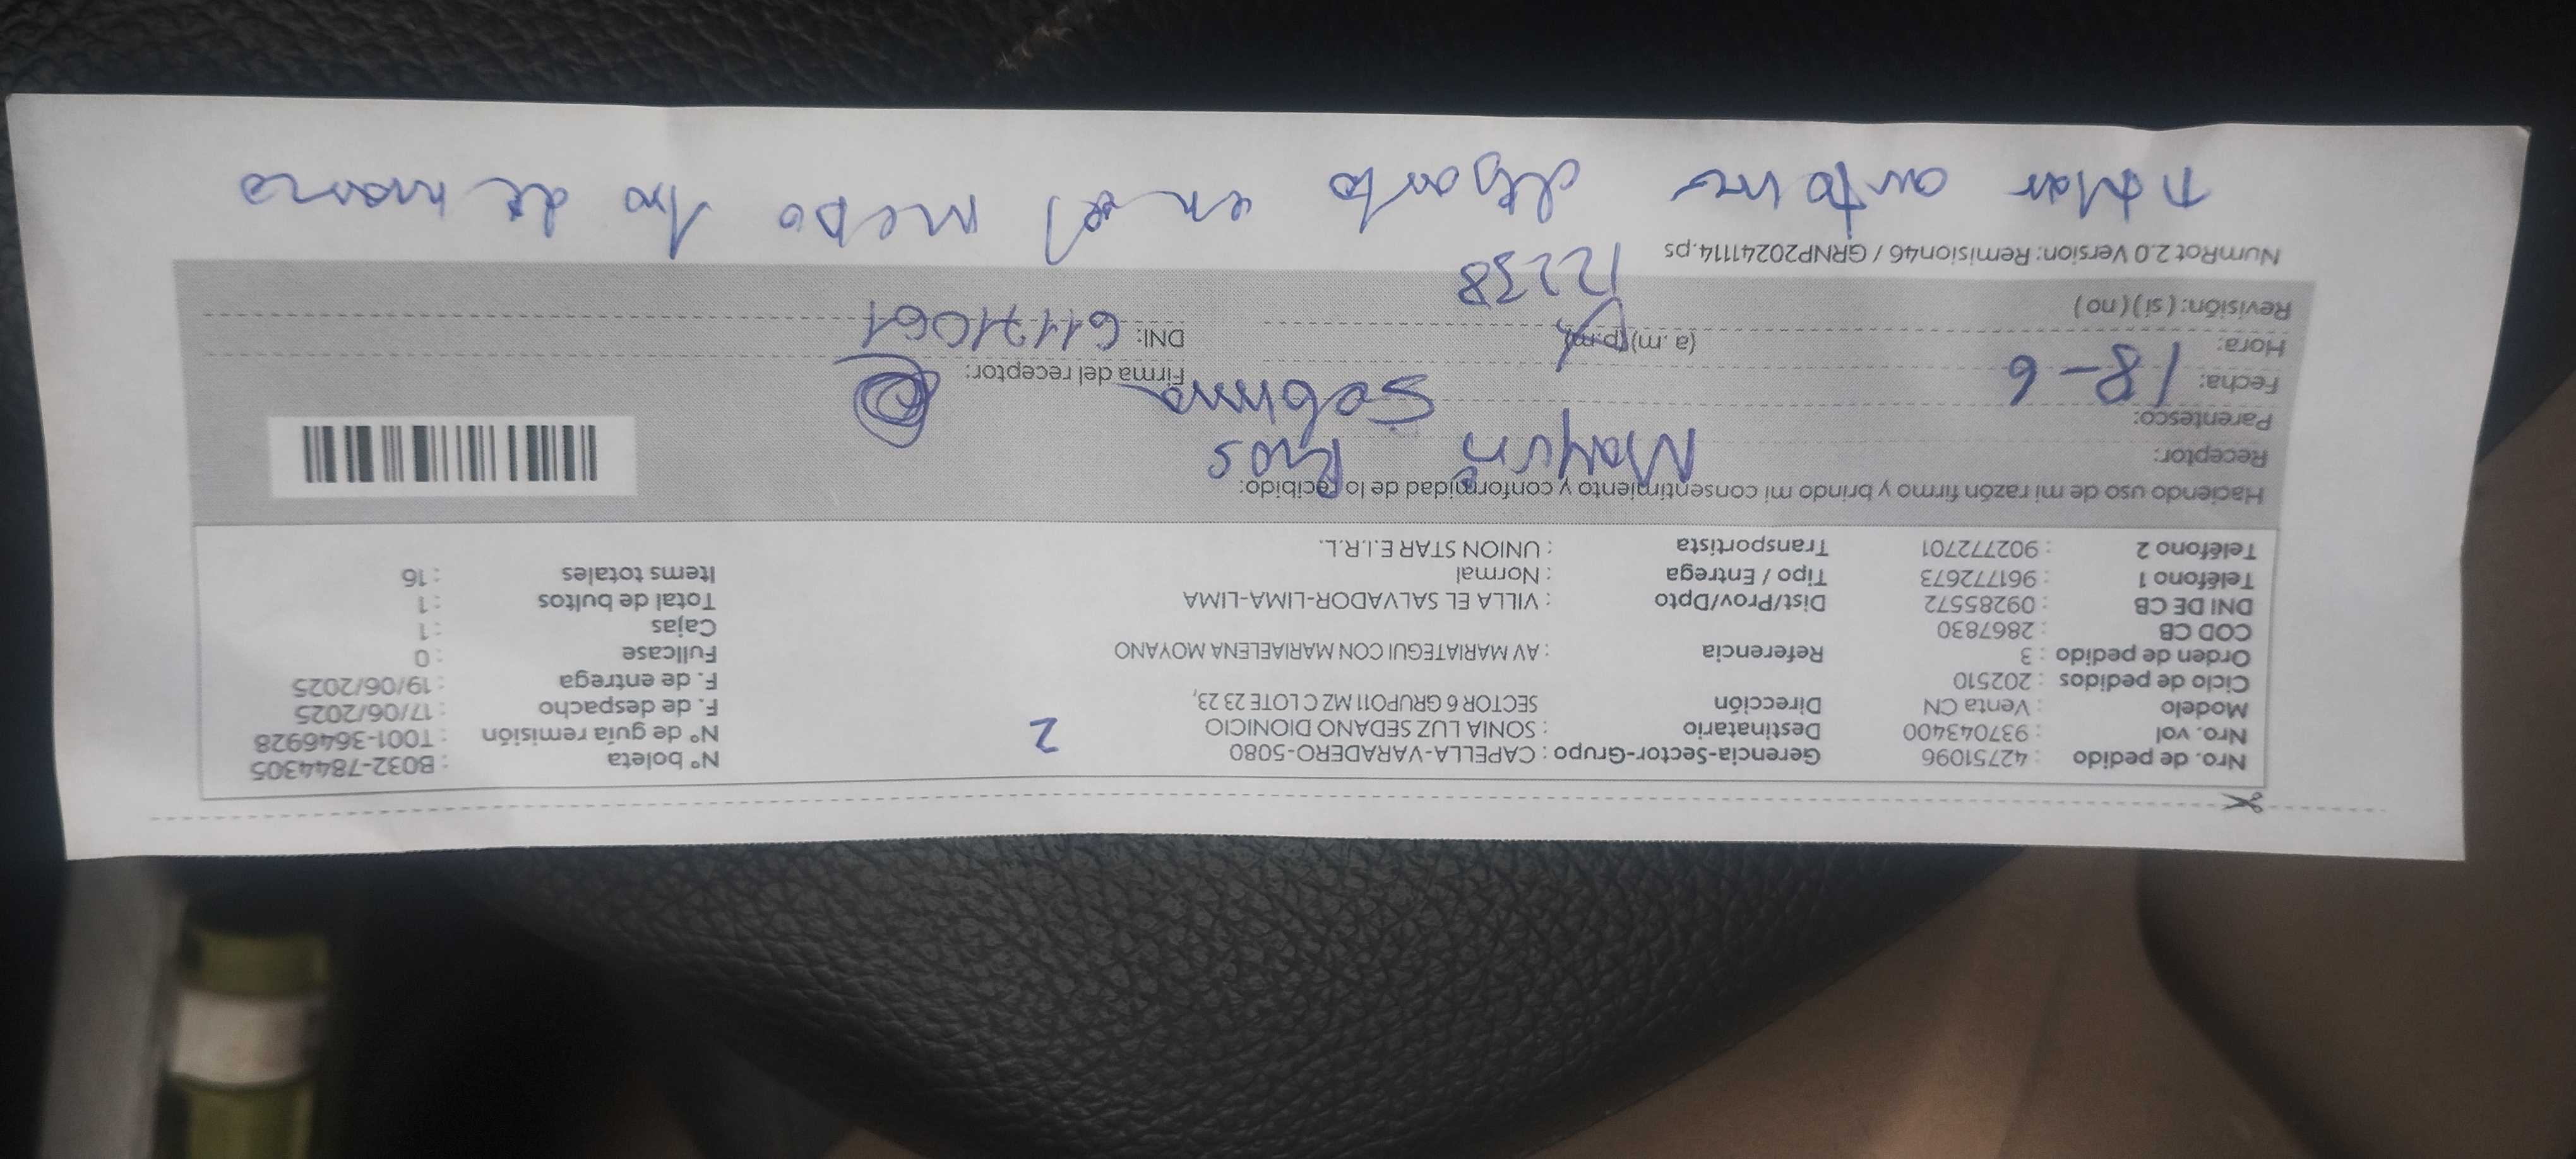 Nro. de pedido : 42751096 Gerencia-Sector-Grupo : CAPELLA-VARADERO-5080 N° boleta : B032-7844305
Nro. vol : 937043400 Destinatario : SONIA LUZ SEDANO DIONICIO 2 N° de guía remisión : T001-3646928
Modelo : Venta CN Dirección SECTOR 6 GRUPO11 MZ C LOTE 23 23, F. de despacho : 17/06/2025
Ciclo de pedidos : 202510 F. de entrega : 19/06/2025
Orden de pedido : 3 Referencia : AV MARIATEGUI CON MARIAELENA MOYANO Fullcase : 0
COD CB : 2867830 Cajas : 1
DNI DE CB : 09285572 Dist/Prov/Dpto : VILLA EL SALVADOR-LIMA-LIMA Total de bultos : 1
Teléfono 1 : 961772673 Tipo / Entrega : Normal Items totales : 16
Teléfono 2 : 902772701 Transportista : UNION STAR E.I.R.L.
Haciendo uso de mi razón firmo y brindo mi consentimiento y conformidad de lo recibido:
Receptor: Rios
Parentesco: Sobrina
Fecha: 18-6 Firma del receptor:
Hora: (a.m)(p.m) DNI: 61171061
Revisión: (si)(no) 12238
NumRot 2.0 Version: Remision46 / GRNP20241114.ps
en el 1ro de mano